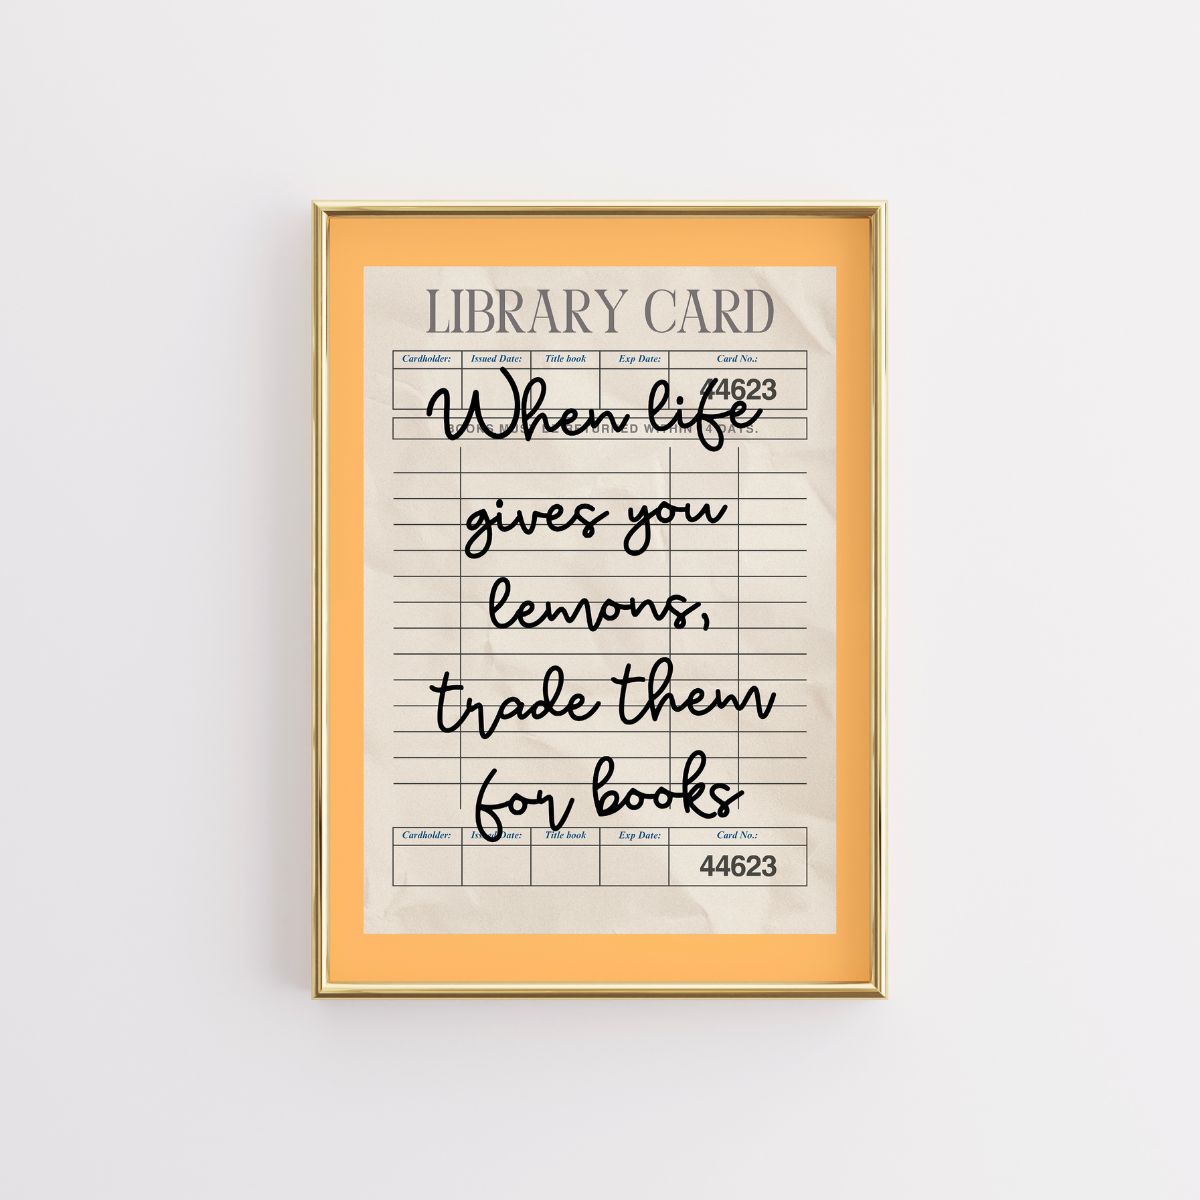 LIBRARY CARD
Cardholder: Issued Date: Title book Exp Date: Card No.:
44623
When life
BOOKS MUST BE RETURNED WITHIN 14 DAYS.
gives you
lemons,
trade them
for books
Cardholder: Issued Date: Title book Exp Date: Card No.:
44623